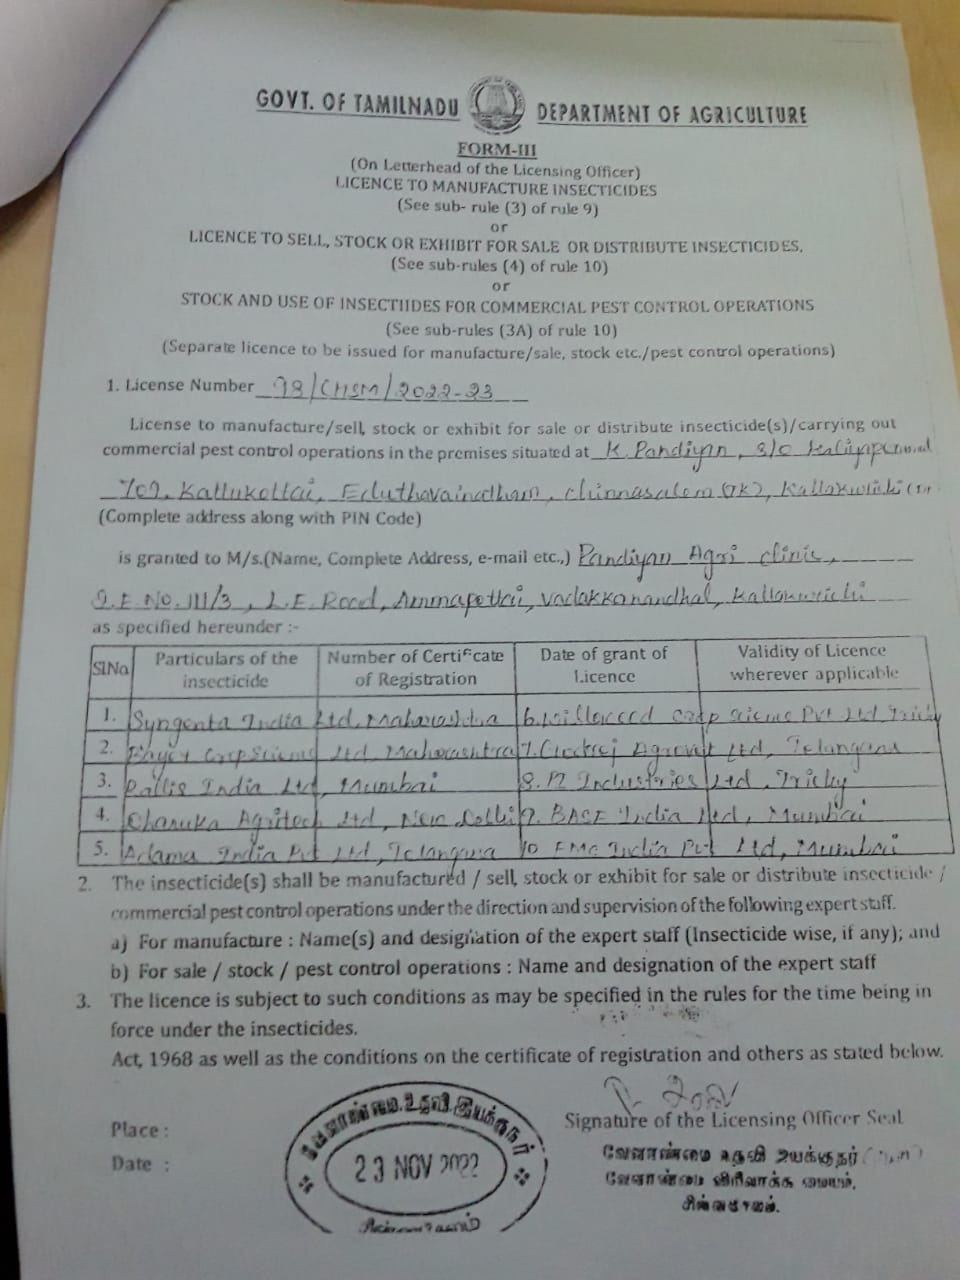 GOVT. OF TAMILNADU DEPARTMENT OF AGRICULTURE
FORM-III
(On Letterhead of the Licensing Officer)
LICENCE TO MANUFACTURE INSECTICIDES
(See sub- rule (3) of rule 9)
or
LICENCE TO SELL, STOCK OR EXHIBIT FOR SALE OR DISTRIBUTE INSECTICIDES.
(See sub-rules (4) of rule 10)
or
STOCK AND USE OF INSECTIIDES FOR COMMERCIAL PEST CONTROL OPERATIONS
(See sub-rules (3A) of rule 10)
(Separate licence to be issued for manufacture/sale, stock etc./pest control operations)
1. License Number 98/CHSM/2022-23
License to manufacture/sell, stock or exhibit for sale or distribute insecticide(s)/carrying out
commercial pest control operations in the premises situated at K. Pandiyan, S/O Kaliyaperumal
Kattukottai, Chinnasalem (TK),
(Complete address along with PIN Code)
is granted to M/s.(Name, Complete Address, e-mail etc.,) Pandiyan Agri clinic,
No. 111/3, L.F. Road, Ammapettai, Vadakkanandhal, Kallakurichi
as specified hereunder :-
Sl.No Particulars of the insecticide Number of Certificate of Registration Date of grant of Licence Validity of Licence wherever applicable
1. Syngenta India Ltd, Maharashtra 6. Crop Science Pvt Ltd, Tricky
2. Bayer CropScience Ltd Maharashtra 7. Godrej Agrovet Ltd, Telangana
3. Rallis India Ltd, Mumbai 8. Industries Ltd, Tricky
4. Dhanuka Agritech Ltd, New Delhi 9. BASF India Ltd, Mumbai
5. Adama India Pvt Ltd, Telangana 10 FMC India Pvt Ltd, Mumbai
2. The insecticide(s) shall be manufactured / sell, stock or exhibit for sale or distribute insecticide /
commercial pest control operations under the direction and supervision of the following expert staff.
a) For manufacture : Name(s) and designation of the expert staff (Insecticide wise, if any); and
b) For sale / stock / pest control operations : Name and designation of the expert staff
3. The licence is subject to such conditions as may be specified in the rules for the time being in
force under the insecticides.
Act, 1968 as well as the conditions on the certificate of registration and others as stated below.
Signature of the Licensing Officer Seal
Place :
Date :
வேளாண்மை உதவி இயக்குநர்
23 NOV 2022
சின்னசேலம்
வேளாண்மை உதவி இயக்குநர்
வேளாண்மை விரிவாக்க மையம்,
சின்னசேலம்.